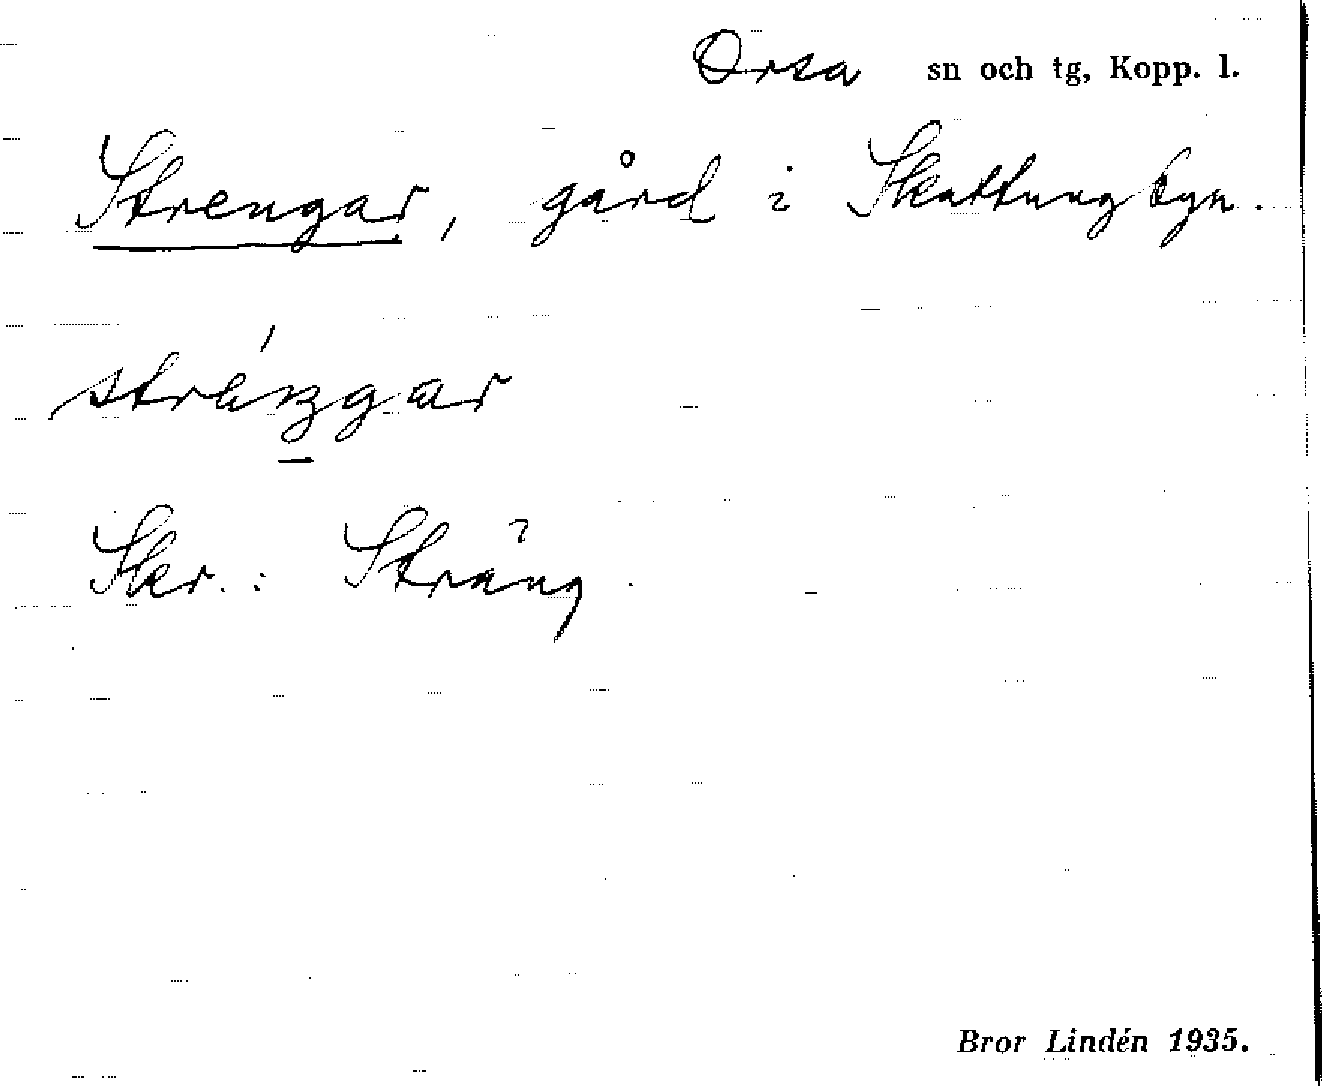 Orsa sn och tg, Kopp. l.
Strengar, gård i Skattungbyn.
Skr.: Sträng.
Bror Lindén 1935.